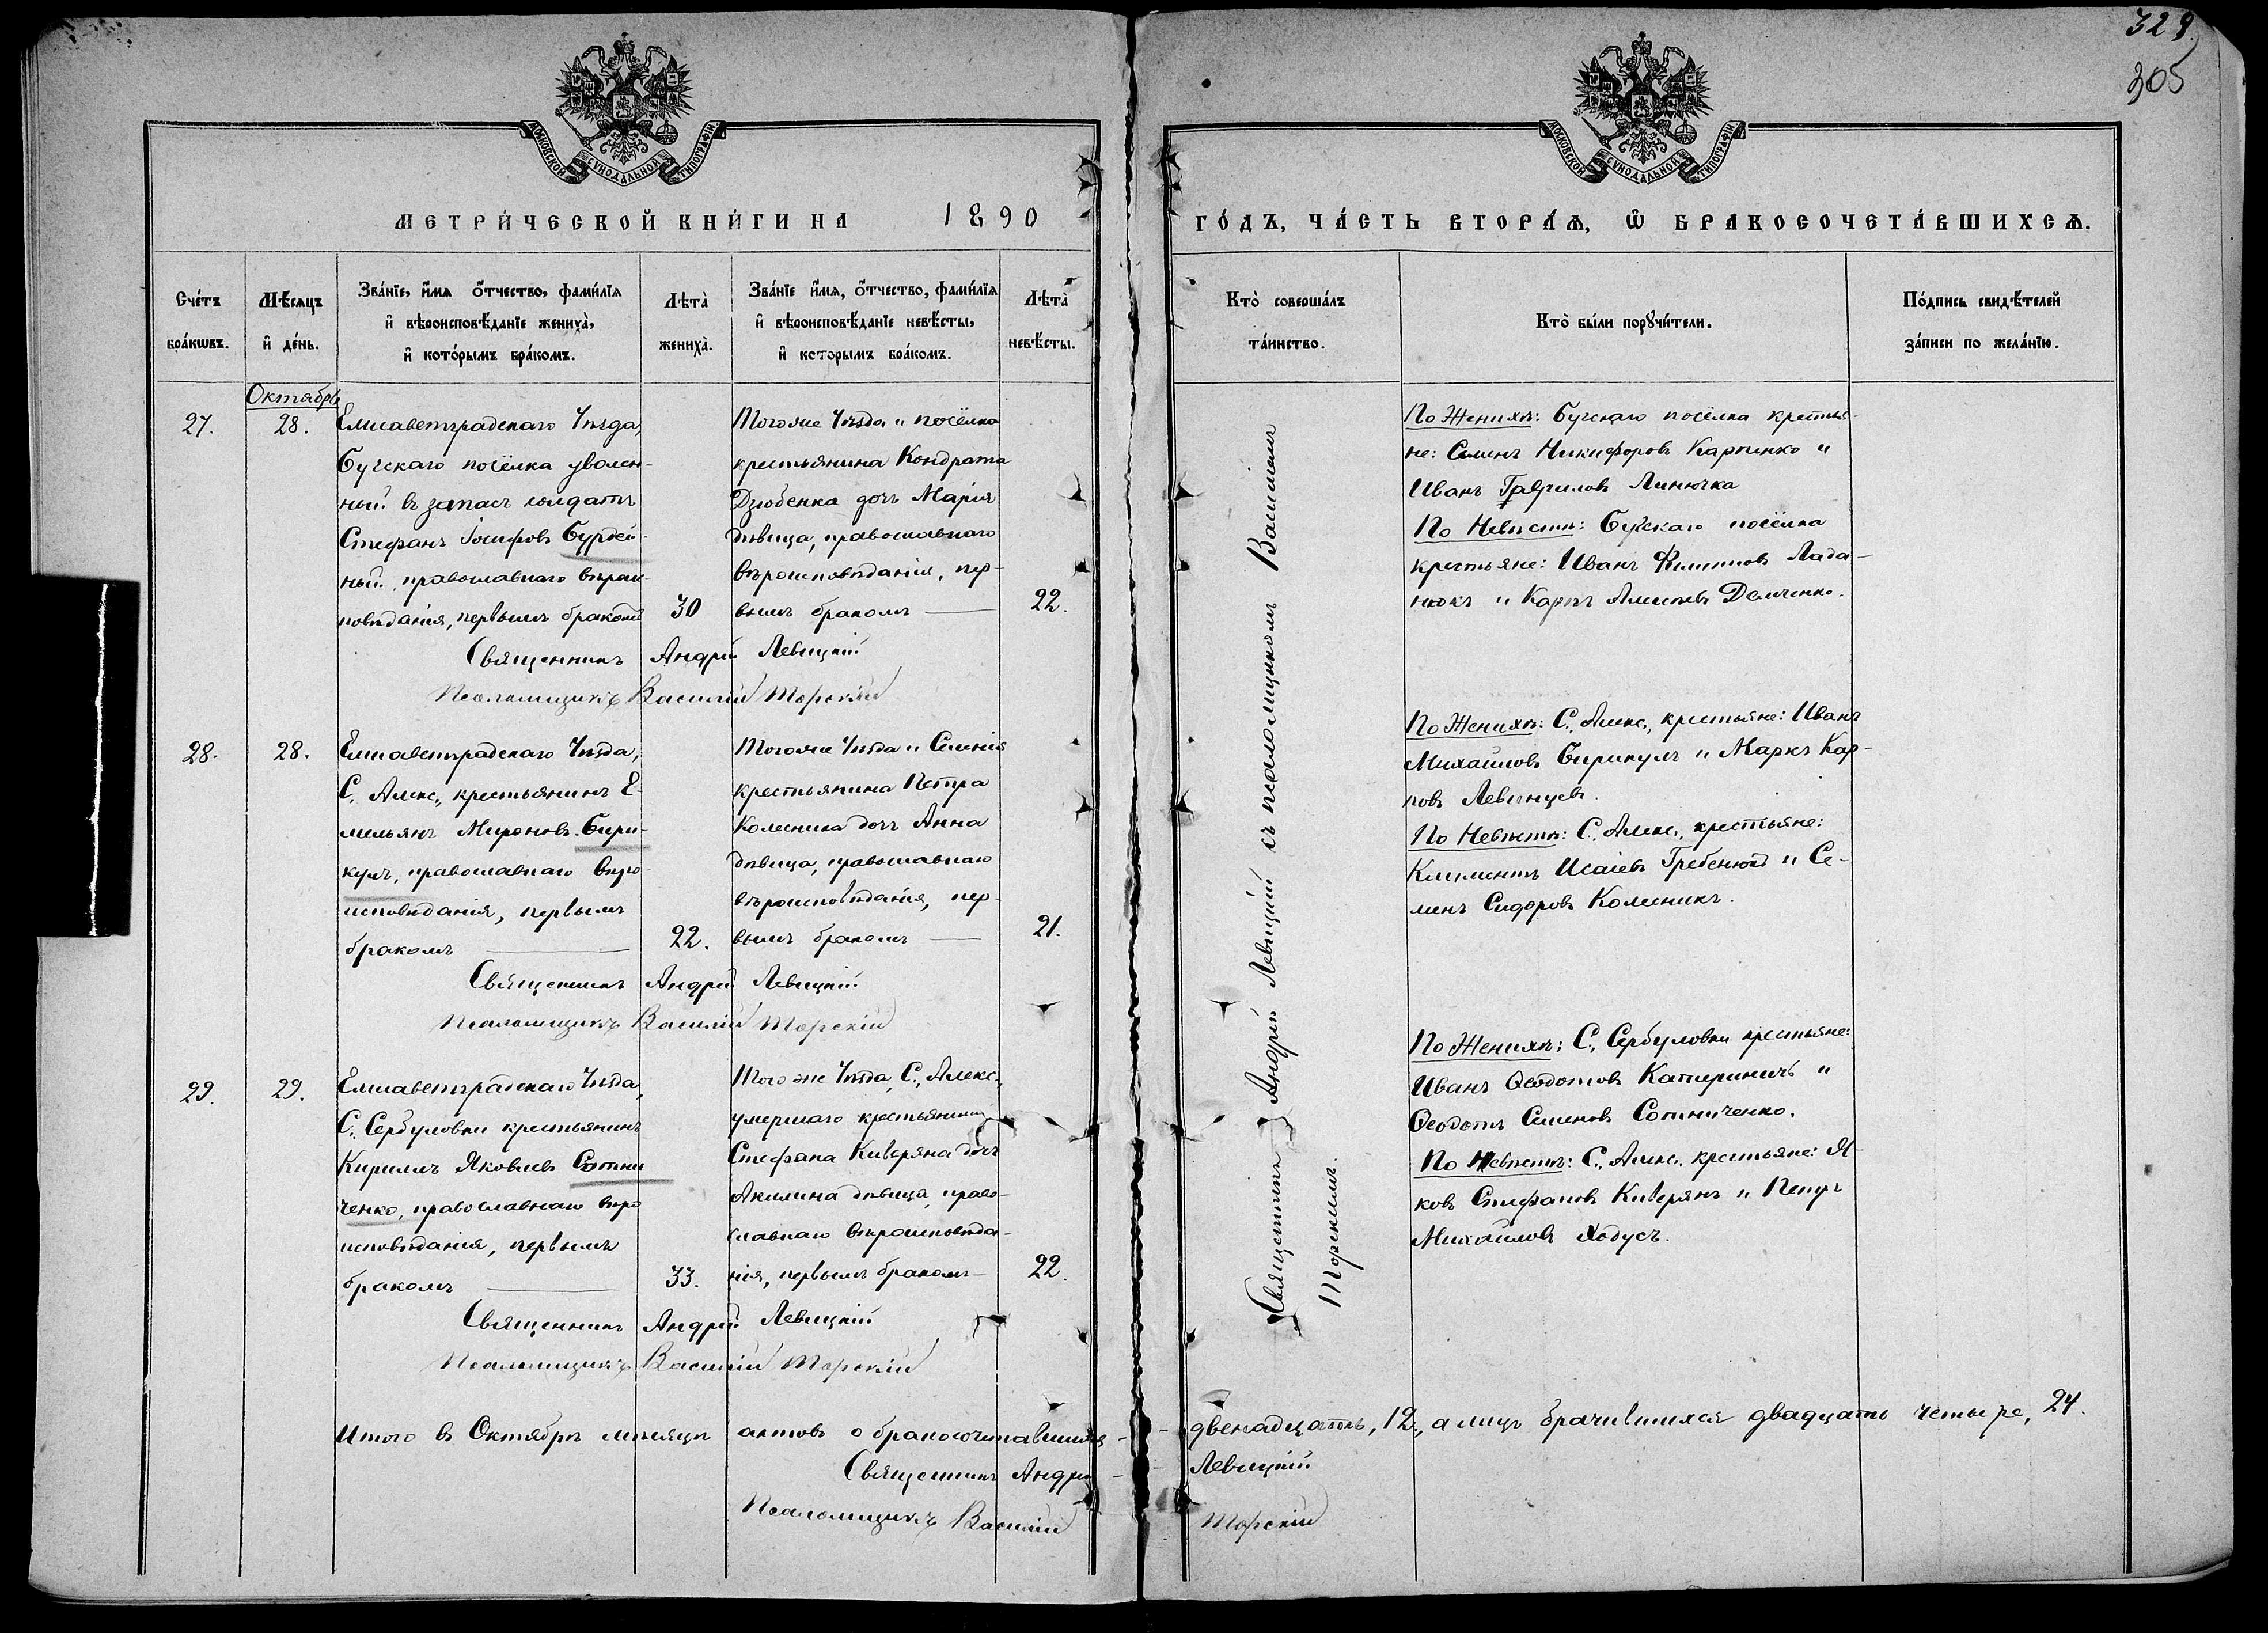 329
305
МОСКОВСКОЙ СѴНОДАЛЬНОЙ ТИПОГРАФІИ
МОСКОВСКОЙ СѴНОДАЛЬНОЙ ТИПОГРАФІИ
МЕТРИ́ЧЕСКОЙ КНИ́ГИ НА 1890
ГО́ДЪ, ЧА́СТЬ ВТОРА́Ѧ, Ѡ҆ БРАКОСОЧЕТА́ВШИХСѦ.
Сче́тъ
бра́кѡвъ.
Мѣ́сяцъ
и҆ де́нь.
Зва́нїе, и҆́мя ѻ҆́тчество, фами́лїя
и҆ вѣроисповѣ́данїе жениха̀,
и҆ кото́рымъ бра́комъ.
Лѣта̀
жениха̀.
Зва́нїе и҆́мя, ѻ҆́тчество, фами́лїя
и҆ вѣроисповѣ́данїе невѣ́сты,
и҆ которымъ бра́комъ.
Лѣта̀
невѣ́сты.
Кто̀ соверша́лъ
та́инство.
Кто̀ бы́ли порꙋчи́тели.
По́дпись свидѣ́телей
за́писи по жела́нїю.
Октябрь
27.
28.
Елисаветградскаго Уѣзда,
Бугскаго посёлка уволен-
ный въ запасъ солдатъ
Стефанъ Іосифовъ Бурдей-
ный, православнаго вѣроис-
повѣданія, первымъ бракомъ
30
Тогоже Уѣзда и посёлка
крестьянина Кондрата
Дзюбенка дочь Марія
дѣвица, православнаго
вѣроисповѣданія, пер-
вымъ бракомъ
22.
Священникъ Андрей Левицкій
Псаломщикъ Василій Торскій
По Женихѣ: Бугскаго посёлка крестья-
не: Семенъ Никифоровъ Карпенко и
Иванъ Гавриловъ Линючка
По Невѣстѣ: Бугскаго посёлка
крестьяне: Иванъ Филиповъ Лада-
нюкъ и Карпъ Демченко.
28.
28.
Елисаветградскаго Уѣзда,
С. Алекс., крестьянинъ Е-
мельянъ Мироновъ Бири-
кулъ, православнаго вѣро-
исповѣданія, первымъ
бракомъ
22.
Тогоже Уѣзда и Селенія
крестьянина Петра
Колесника дочь Анна
дѣвица, православнаго
вѣроисповѣданія, пер-
вымъ бракомъ
21.
Священникъ Андрей Левицкій
Псаломщикъ Василій Торскій
По Женихѣ: С. Алекс., крестьяне: Иванъ
Михайловъ Бирикулъ и Маркъ Кар-
повъ Левинцевъ.
По Невѣстѣ: С. Алекс. крестьяне:
Климентъ Исаіевъ Гребенюкъ и Се-
менъ Сидоровъ Колесникъ.
29.
29.
Елисаветградскаго Уѣзда,
С. Сербуловки крестьянинъ
Кириллъ Яковлевъ Сотни-
ченко, православнаго вѣро
исповѣданія, первымъ
бракомъ
33.
Того же Уѣзда, С. Алекс.
умершаго крестьянина
Стефана Киверяна дочь
Акилина дѣвица, право-
славнаго вѣроисповѣда-
нія, первымъ бракомъ
22.
Священникъ Андрей Левицкій
Псаломщикъ Василій Торскій
По Женихѣ: С. Сербуловки крестьяне:
Иванъ Ѳеодотовъ Катериничъ и
Ѳеодотъ Семеновъ Сотниченко.
По Невѣстѣ: С. Алекс. крестьяне: Я-
ковъ Стефановъ Киверянъ и Петръ
Михайловъ Ходусъ.
Священникъ Андрей Левицкій съ псаломщикомъ Василіемъ
Торскимъ.
Итого въ Октябрѣ мѣсяцѣ актовъ о бракосочетавшихся - двенадцать, 12, а лицъ брачившихся двадцать четыре, 24.
Священникъ Андрей Левицкій
Псаломщикъ Василій Торскій